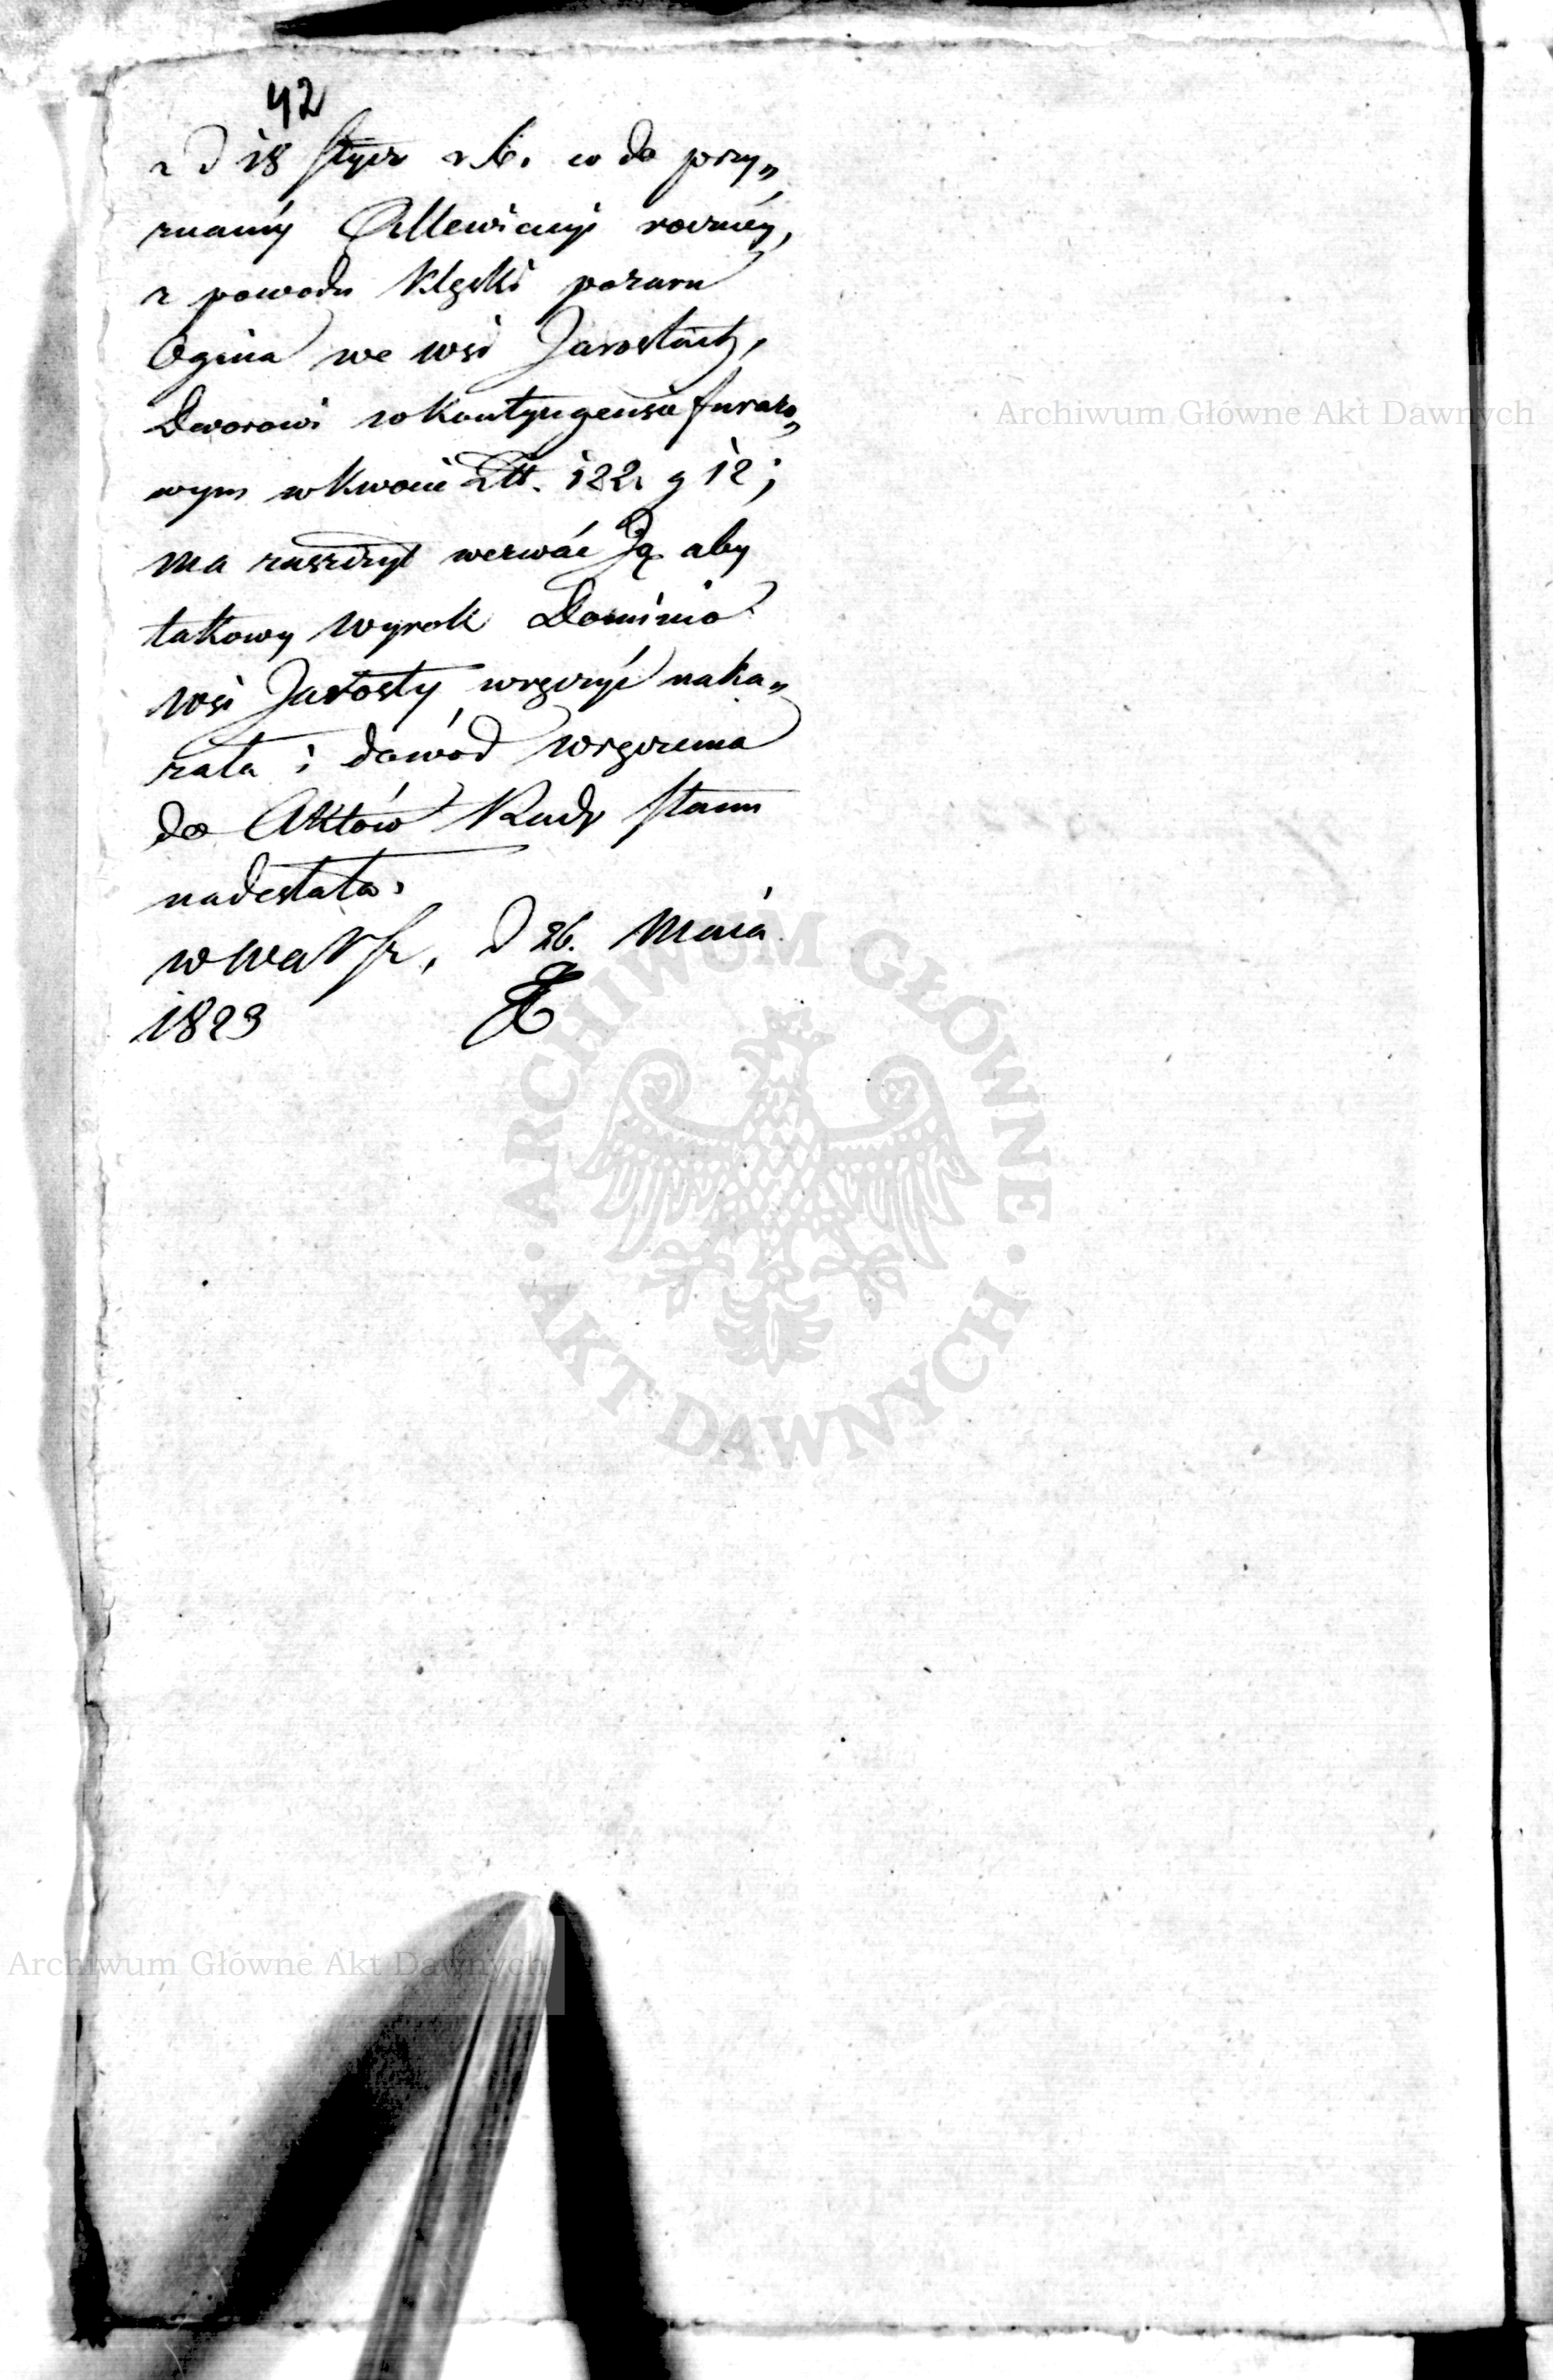 42
z d 18 Stycz r. b. co do przy„
znaney Allewiacyi roczney,
z powodu klęski pożaru
Ognia we wsi Jarostach,
Dworowi w kontyngensie furażo„
wym w kwocie Złt. 122. g 12;
ma zaszczyt wezwać Ją aby
takowy wyrok Dominio
wsi Jarosty wręczyć naka„
zała i dowód wręczenia
do Aktów Rady Stanu
nadesłała.
w Warsz, d 26. Maia
1823
Archiwum Główne Akt Dawnych
ARCHIWUM GŁÓWNE
AKT DAWNYCH
Archiwum Główne Akt Dawnych